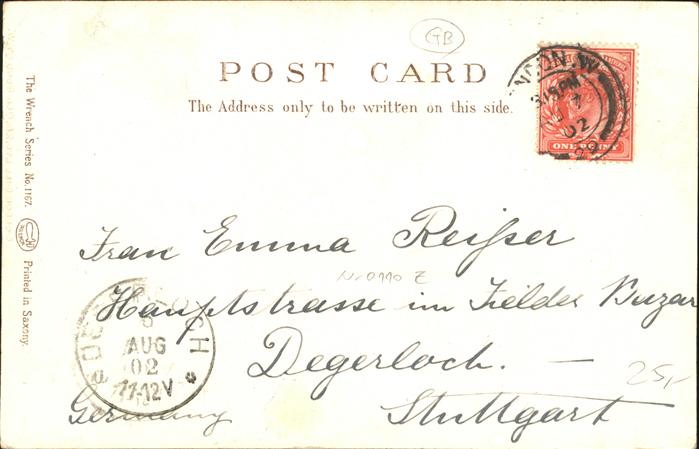 GB
POST CARD
The Address only to be written on this side.
LONDON. W
3.15PM
7
02
22
ONE PENNY
The Wrench Series No. 1167.
Printed in Saxony.
Frau Emma Reisser
Hauptstrasse im Bazar
Degerloch. —
Stuttgart
Germany
DEGERLOCH
AUG
02
11-12V
25,-